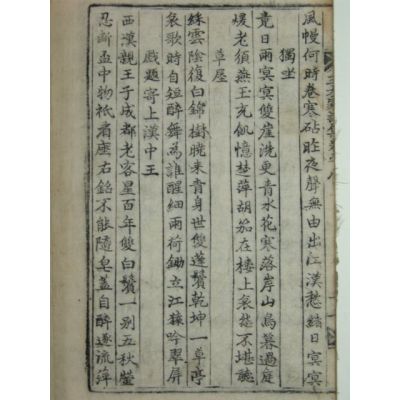 風幔何時卷寒砧昨夜聲無由出江漢愁緒日冥冥
獨坐
竟日雨冥冥雙崖洗更青水花寒落岸山鳥暮過庭
煖老須燕玉充飢憶楚萍胡笳在樓上哀怨不堪聽
草屋
綵雲陰復白錦樹曉來青身世雙蓬鬢乾坤一草亭
哀歌時自短醉舞為誰醒細雨荷鋤立江猿吟翠屏
戲題寄上漢中王
西漢親王子成都老客星百年雙白鬢一別五秋螢
忍斷盃中物祗看座右銘不能隨皂蓋自醉逐流萍